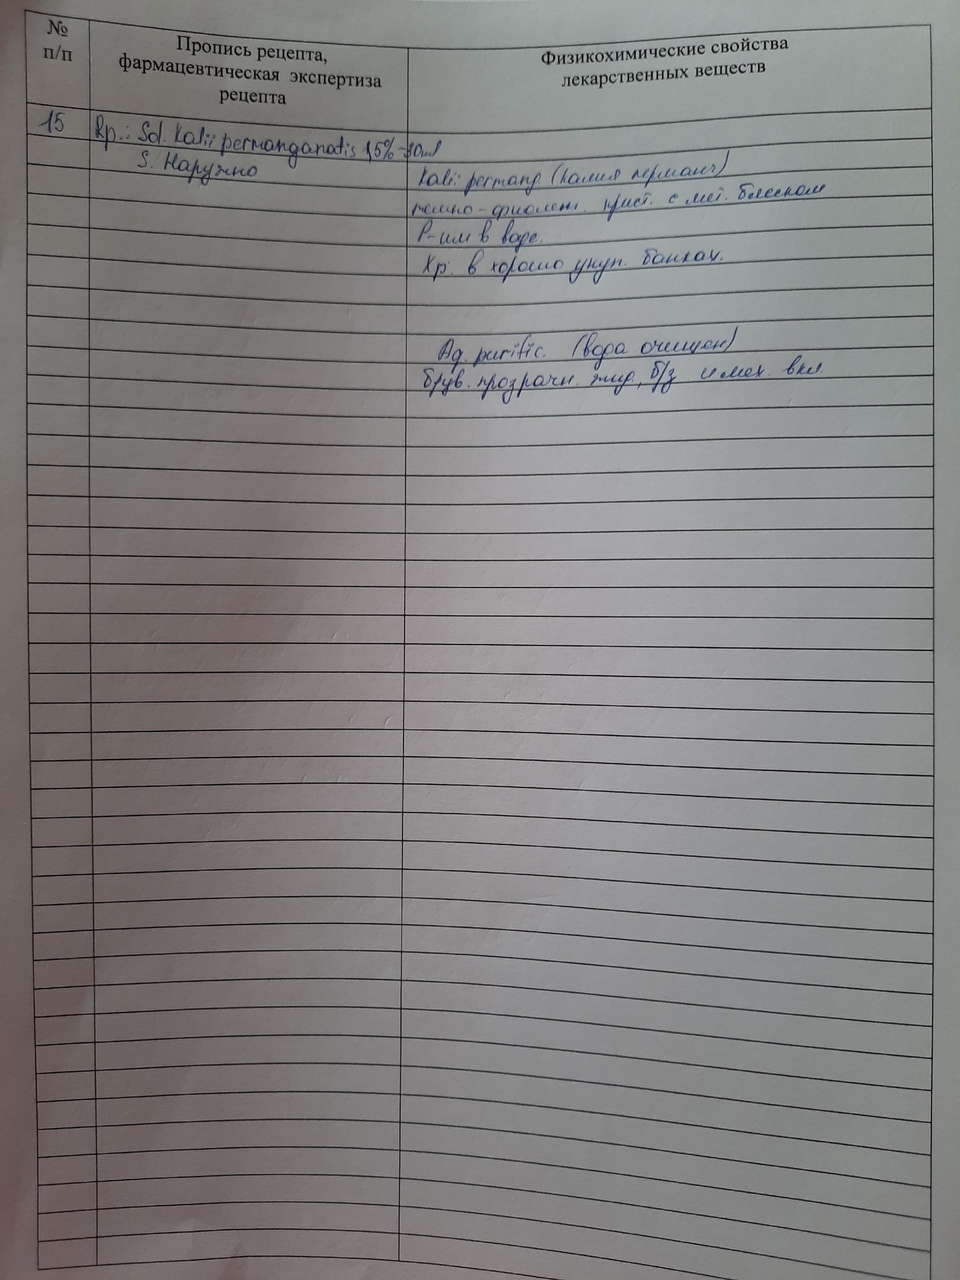 №
п/п
Пропись рецепта,
фармацевтическая экспертиза
рецепта
Физикохимические свойства
лекарственных веществ
15
Rp.: Sol. Kalii permanganatis 1,5% - 10ml
S. Наружно
Kalii permang (Калия перманг)
темно-фиолет. крист. с мет. блеском
Р-им в воде.
Хр. в хорошо укуп. банках.
Aq. purific. (вода очищен)
б/цв. прозрачн. жид, б/з и мех. вкл